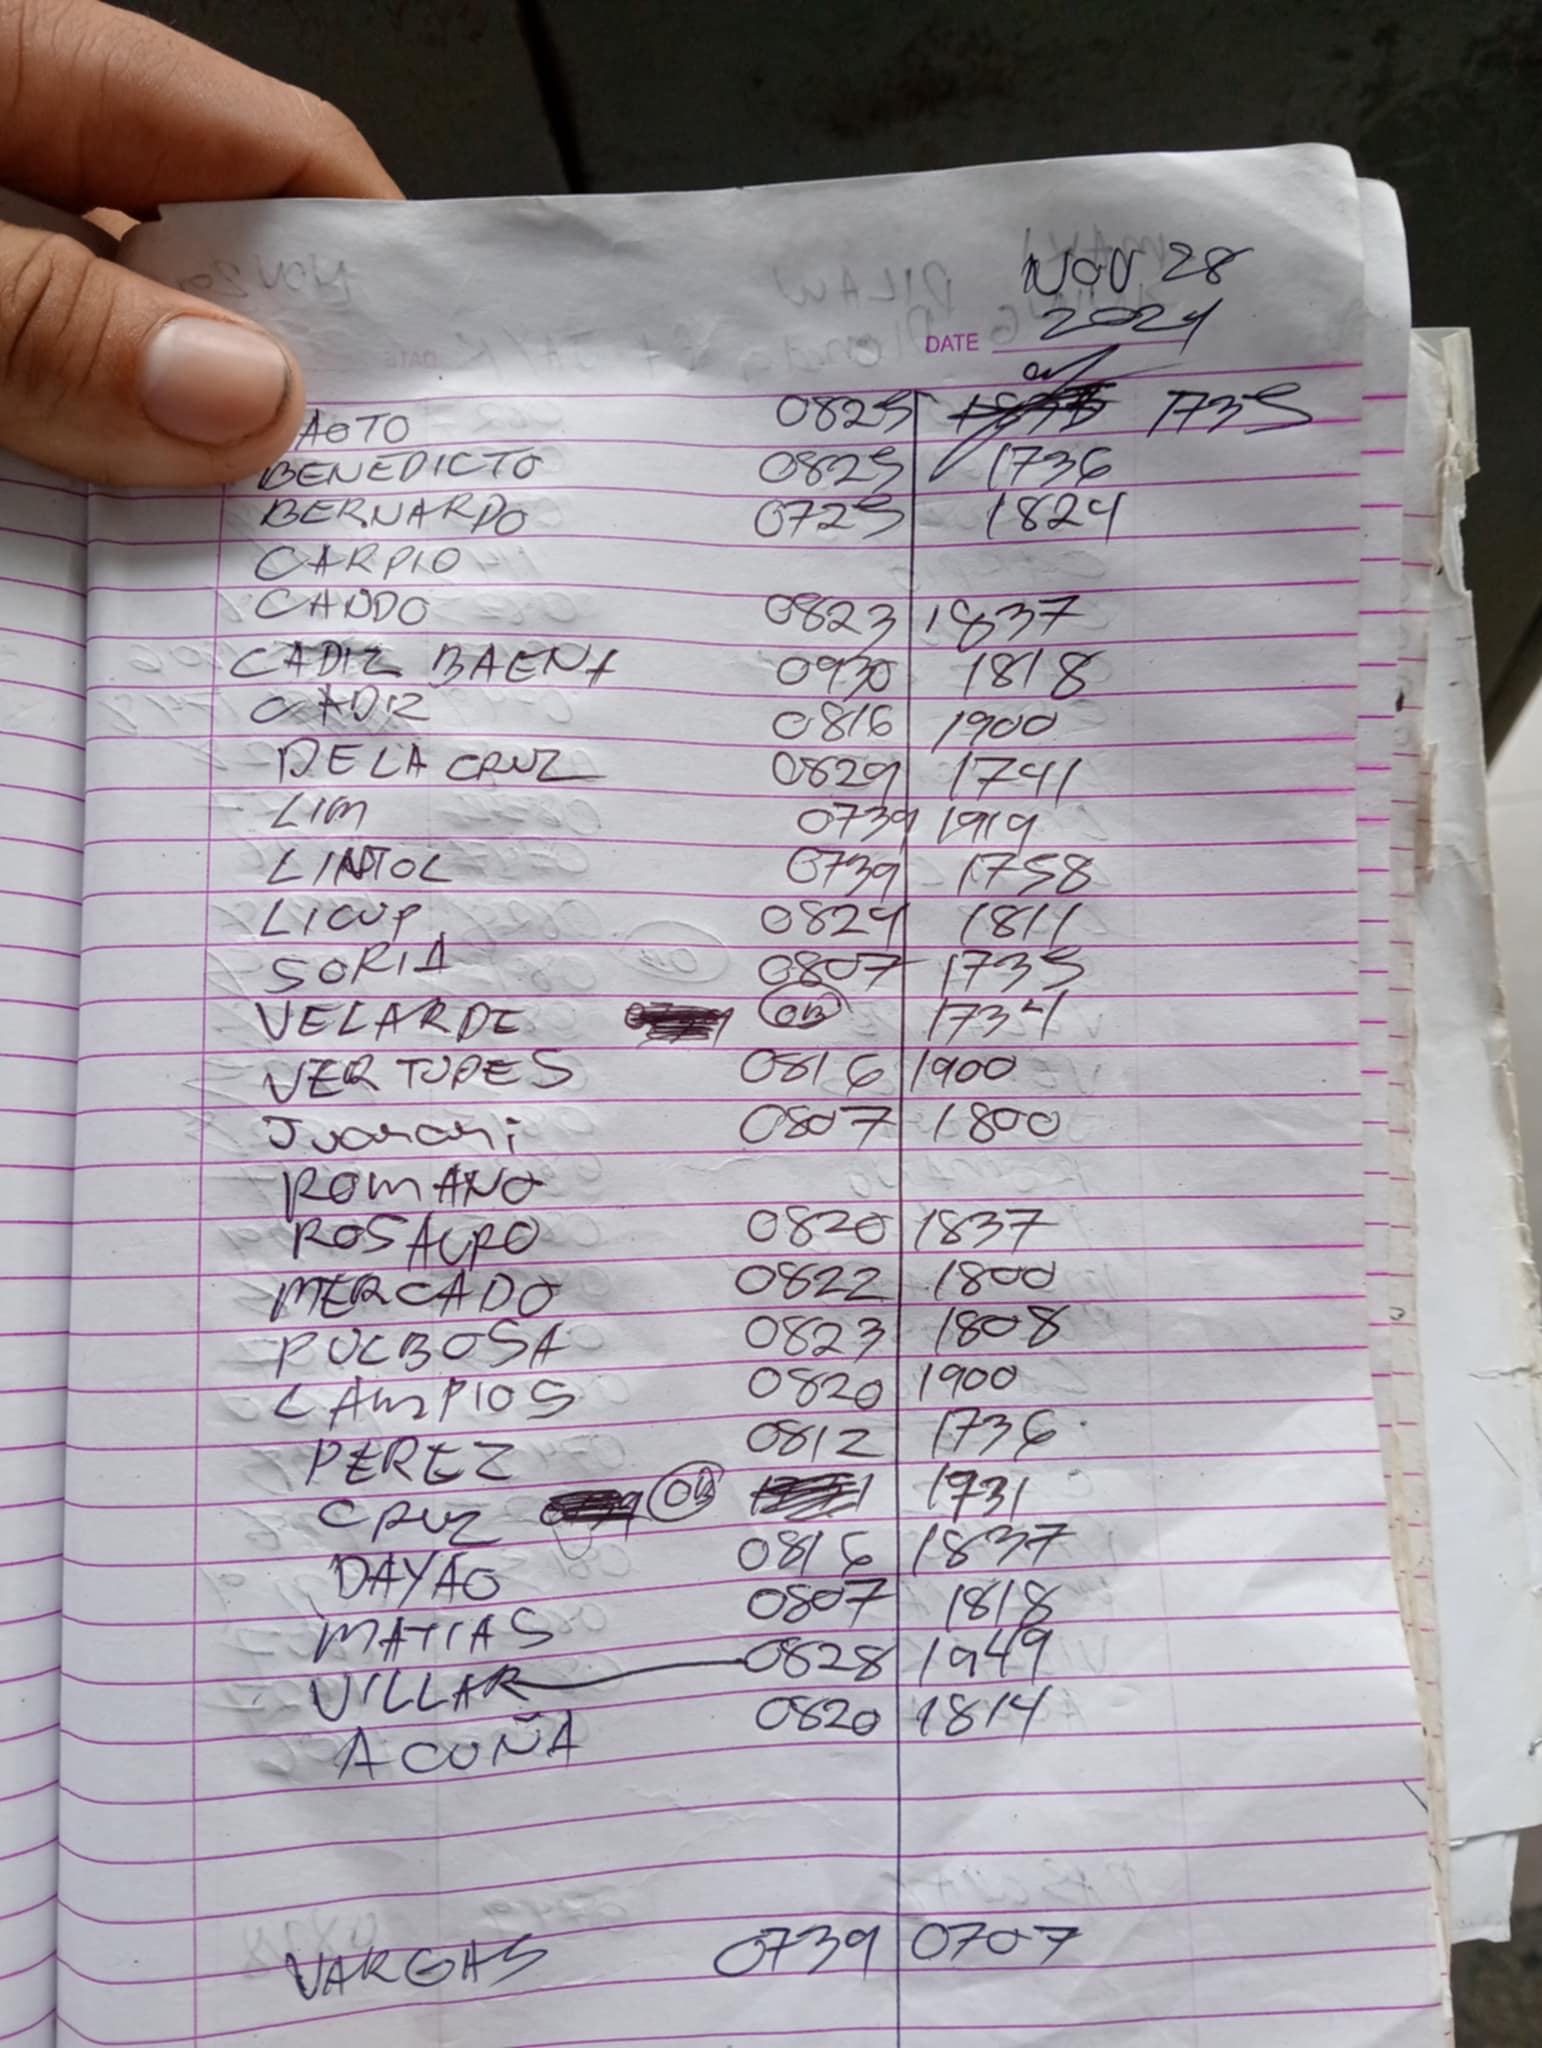 NOV 28
DATE 2024
AOTO 0825 1735
BENEDICTO 0825 1736
BERNARDO 0725 1824
CARPIO
CANDO 0823 1837
CADIZ BAENA 0930 1818
CADIZ 0816 1900
DELA CRUZ 0829 1741
LIM 0739 1919
LINTOL 0739 1758
LICUP 0824 1811
SORIA 0807 1735
VELARDE OB 1734
VERTUDES 0816 1900
Juanani 0807 1800
ROMANO
ROSAURO 0820 1837
MERCADO 0822 1800
PULBOSA 0823 1808
LAMPIOS 0820 1900
PEREZ 0812 1736
CRUZ OB 1931
DAYAO 0816 1837
MATIAS 0807 1818
VILLAR 0828 1949
ACUÑA 0820 1814
VARGAS 0739 0707